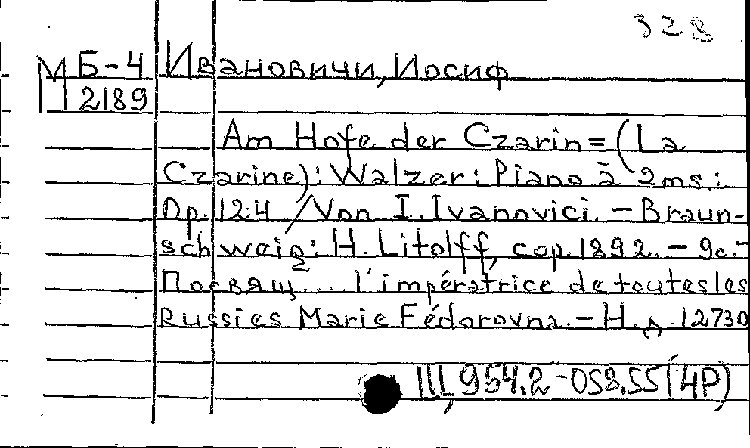 328
М Б-4 Ивановичи, Иосиф
2189
Am Hofe der Czarin = (La
Czarine): Walzer: Piano à 2ms.:
Op. 124 / Von I. Ivanovici. - Braun-
schweig: H. Litolff, cop. 1892. - 9c. -
Посвящ... l'impératrice de toutes les
Russies Marie Fédorovna. - Н.д. 12730
Щ 954.2-058.55(4Р)